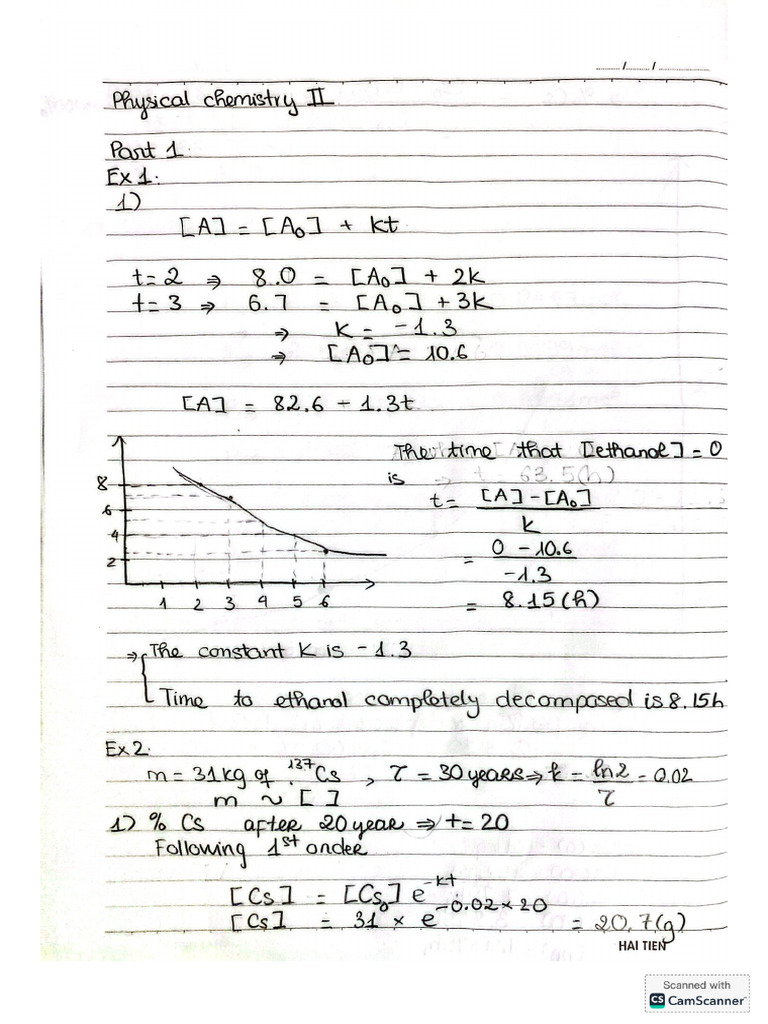 ....../....../..............
Physical chemistry II
Part 1:
Ex 1:
1)
[A] = [A₀] + kt
t=2 ⇒ 8.0 = [A₀] + 2k
t=3 ⇒ 6.7 = [A₀] + 3k
⇒ k = -1.3
⇒ [A₀] = 10.6
[A] = 82.6 - 1.3t
The time that [ethanol] = 0
is ⇒ t = 63.5(h)
t = ([A] - [A₀]) / k
= (0 - 10.6) / -1.3
= 8.15 (h)
8
6
4
2
1 2 3 4 5 6
⇒ The constant k is -1.3
Time to ethanol completely decomposed is 8.15h
Ex 2:
m = 31kg of ¹³⁷Cs, τ = 30 years ⇒ k = ln2 / τ = 0.02
m ~ [ ]
1) % Cs after 20 year ⇒ t = 20
Following 1st order
[Cs] = [Cs₀] e^-kt
[Cs] = 31 × e^-0.02×20 = 20.7(g)
HAI TIEN
Scanned with
CS CamScanner